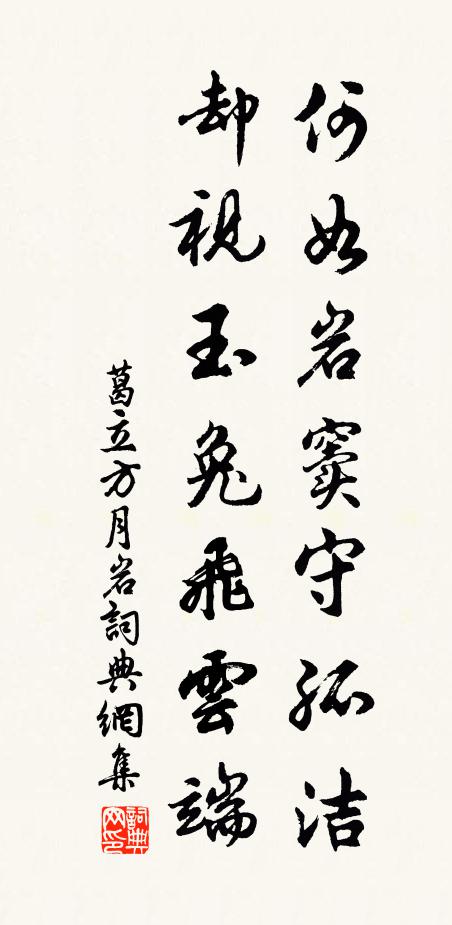 何如岩竇守孤洁
却視玉兔飛雲端
葛立方月岩詞典網集
詞典網印